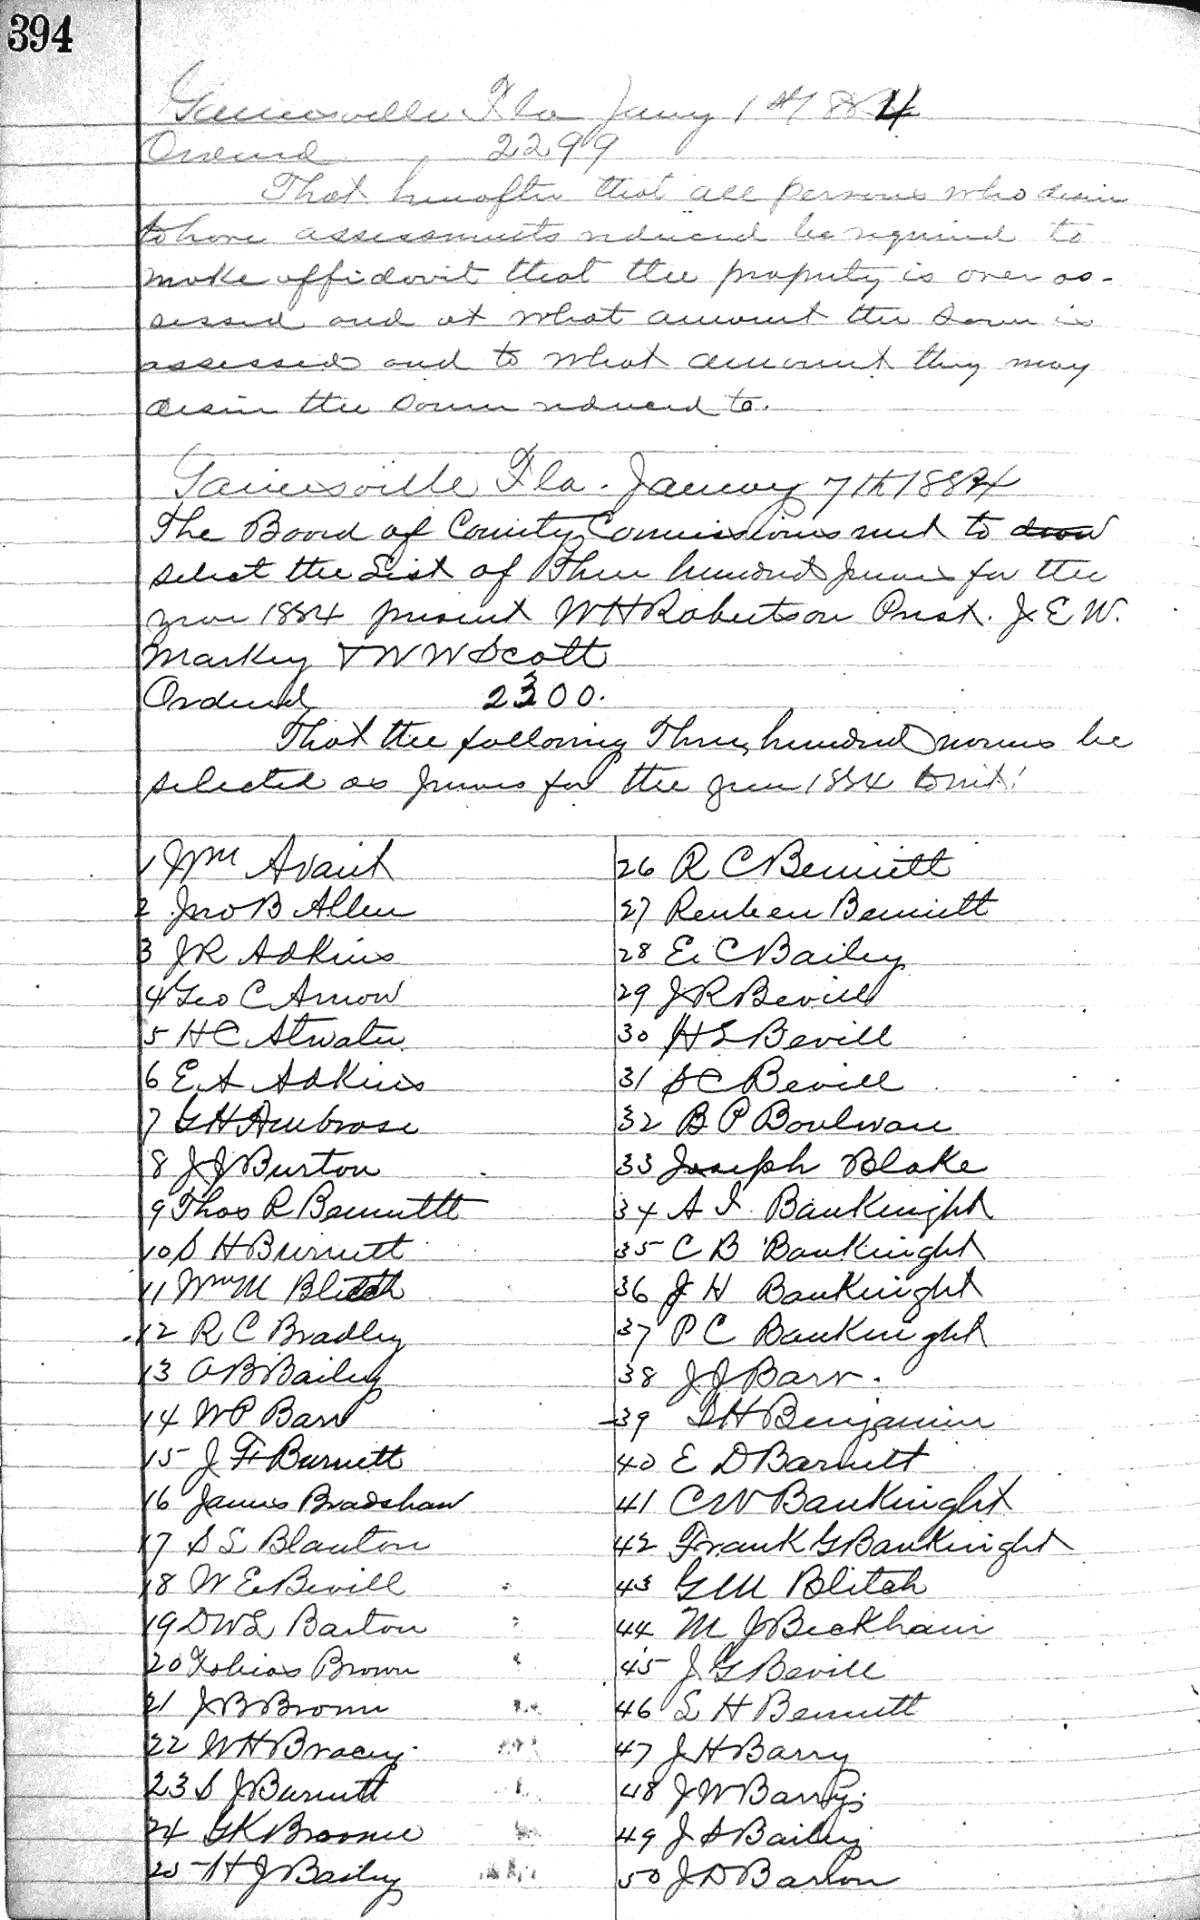 394
Gainesville Fla Jany 1st 1884
Ordered 2299
That hereafter that all persons who desire
to have assessments reduced be required to
make affidavit that the property is over as-
sessed and at what amount the same is
assessed and to what amount they may
desire the same reduced to.
Gainesville Fla. January 7th 1884
The Board of County Commissioners met to draw
select the List of Three hundred jurors for the
year 1884 present W H Robertson Prest. J. E. W.
Markey & W W Scott
Ordered 2300.
That the following Three hundred names be
selected as jurors for the year 1884 towit:
1 Wm Avant
2 Jno B Allen
3 J R Adkins
4 Geo C Arnow
5 H C Atwater
6 E A Adkins
7 G H Ambrose
8 J J Burton
9 Thos R Bennett
10 S H Burnett
11 Wm M Blitch
12 R C Bradley
13 A B Bailey
14 W P Barr
15 J F Burnett
16 James Bradshaw
17 S L Blanton
18 W E Bevill
19 D W L Barton
20 Tobias Brown
21 J B Brown
22 W H Bracey
23 S J Burnett
24 G K Broome
25 H J Bailey
26 R C Bennett
27 Reuben Bennett
28 E. C Bailey
29 J R Bevill
30 H L Bevill
31 S C Bevill
32 B P Boulware
33 Joseph Blake
34 A I. Bauknight
35 C B Bauknight
36 J H Bauknight
37 P C Bauknight
38 J J Barr.
39 S H Benjamin
40 E D Barnett
41 C W Bauknight
42 Frank G Bauknight
43 G M Blitch
44 M J Beckham
45 J G Bevill
46 L H Bennett
47 J H Barry
48 J W Barry
49 J S Bailey
50 J D Barton